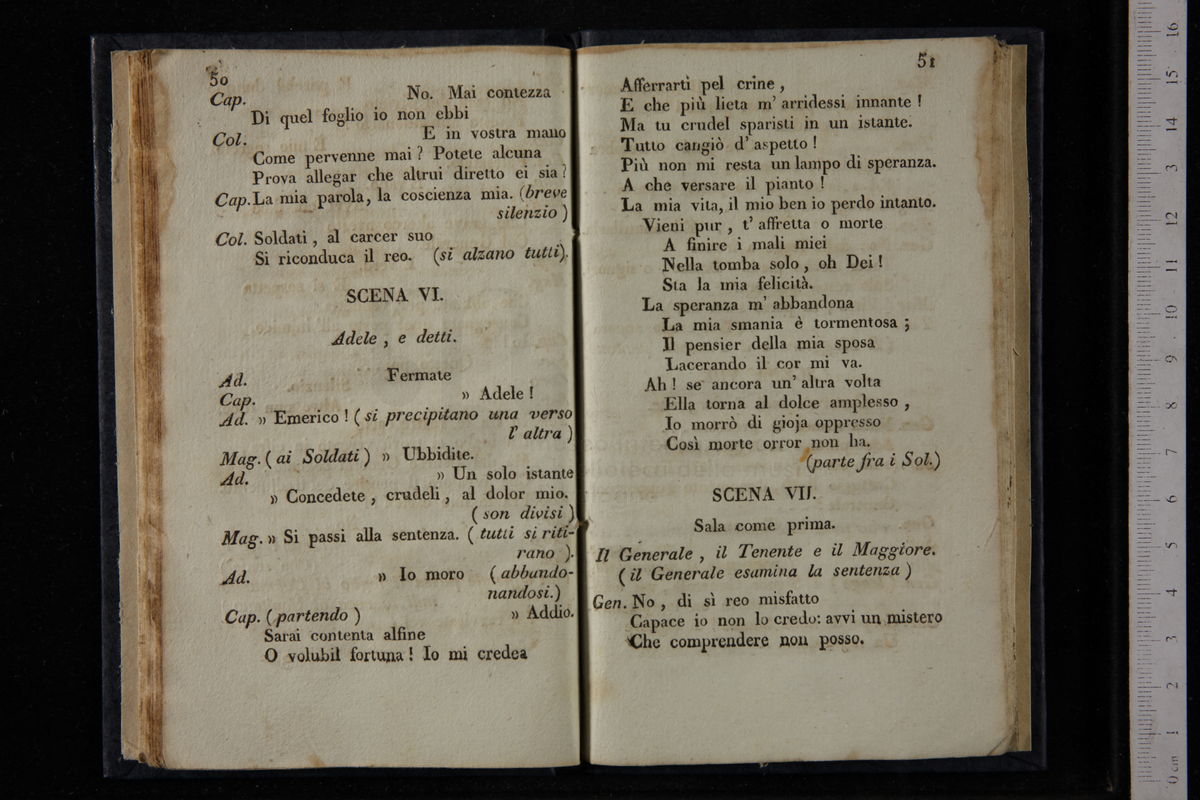 50
Cap. No. Mai contezza
Di quel foglio io non ebbi
Col. E in vostra mano
Come pervenne mai ? Potete alcuna
Prova allegar che altrui diretto ei sia ?
Cap. La mia parola, la coscienza mia. (breve
silenzio )
Col. Soldati , al carcer suo
Si riconduca il reo. (si alzano tutti).
SCENA VI.
Adele , e detti.
Ad. Fermate
Cap. » Adele !
Ad. » Emerico ! ( si precipitano una verso
l' altra )
Mag. ( ai Soldati ) » Ubbidite.
Ad. » Un solo istante
» Concedete , crudeli , al dolor mio.
( son divisi )
Mag. » Si passi alla sentenza. ( tutti si riti-
rano ).
Ad. » Io moro ( abbando-
nandosi.)
Cap. ( partendo ) » Addio.
Sarai contenta alfine
O volubil fortuna ! Io mi credea
51
Afferrarti pel crine ,
E che più lieta m' arridessi innante !
Ma tu crudel sparisti in un istante.
Tutto cangiò d' aspetto !
Più non mi resta un lampo di speranza.
A che versare il pianto !
La mia vita, il mio ben io perdo intanto.
Vieni pur , t' affretta o morte
A finire i mali miei
Nella tomba solo , oh Dei !
Sta la mia felicità.
La speranza m' abbandona
La mia smania è tormentosa ;
Il pensier della mia sposa
Lacerando il cor mi va.
Ah ! se ancora un' altra volta
Ella torna al dolce amplesso ,
Io morrò di gioja oppresso
Così morte orror non ha.
(parte fra i Sol.)
SCENA VII.
Sala come prima.
Il Generale , il Tenente e il Maggiore.
( il Generale esamina la sentenza )
Gen. No , di sì reo misfatto
Capace io non lo credo: avvi un mistero
Che comprendere non posso.
0 cm 1 2 3 4 5 6 7 8 9 10 11 12 13 14 15 16